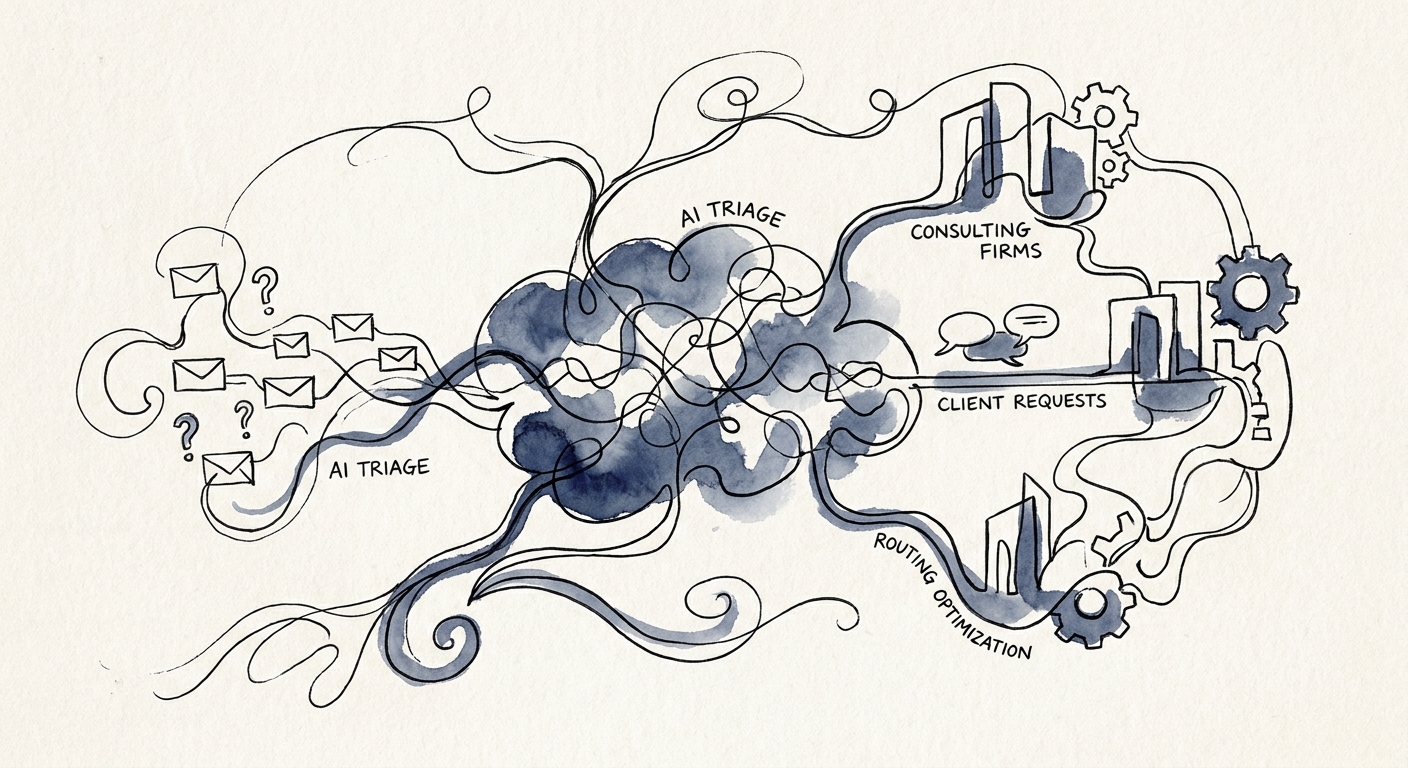 AI TRIAGE
CONSULTING
FIRMS
?
?
?
CLIENT REQUESTS
AI TRIAGE
ROUTING OPTIMIZATION